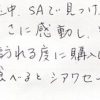 中、SAで見つけ
さに感動し、
訪れる度に購入
食べるとシアワセ